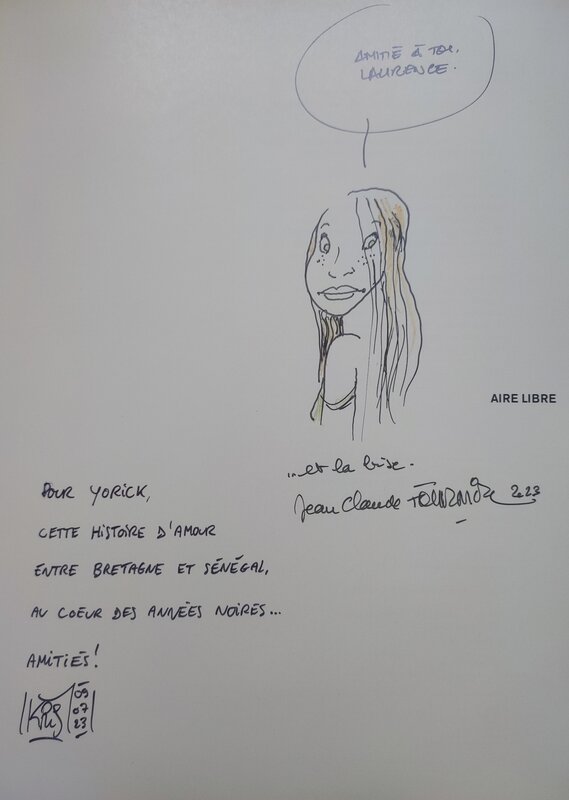 AMITIÉ À TOI,
LAURENCE.
AIRE LIBRE
...et la bise.
Jean Claude FOURNIER 2023
POUR YORICK,
CETTE HISTOIRE D'AMOUR
ENTRE BRETAGNE ET SÉNÉGAL,
AU COEUR DES ANNÉES NOIRES...
AMITIÉS!
KRIS
09
07
23